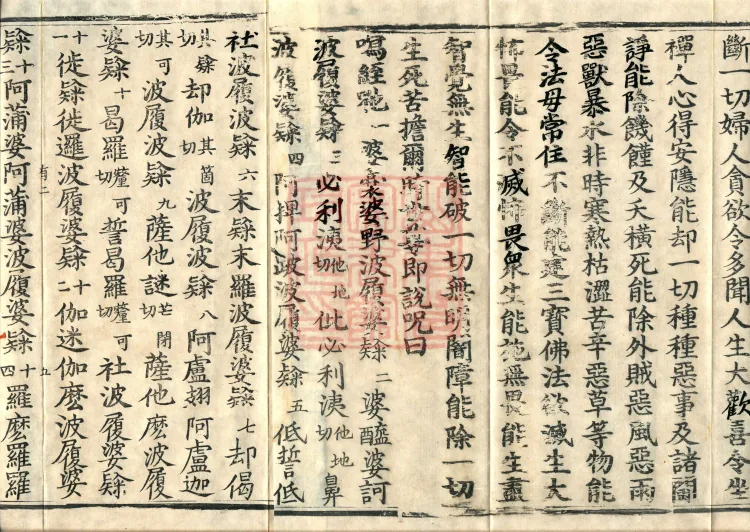 斷一切婦人貪欲令多聞人生大歡喜令坐
禪人心得安隱能却一切種種惡事及諸鬪
諍能除饑饉及夭橫死能除外賊惡風惡雨
惡獸暴水非時寒熱枯澀苦辛惡草等物能
令法母常住不斷能建三寶佛法欲滅生大
怖畏能令不滅怖畏衆生能施無畏能生盡
智覺無生智能破一切無明闇障能除一切
生死苦擔爾時世尊即說呪曰
嗚絰虵一婆婆野波履婆㝹二婆醯婆訶
波履婆㝹三必利洟他地切仳必利洟他地切鼻
波履婆㝹四阿捭阿跛波履婆㝹五低誓低
社波履波㝹六末㝹末羅波履婆㝹七却偈
其㝹切却伽其箇切波履波㝹八阿盧翅阿盧迦
其可切波履波㝹九薩他謎芒閉切薩他麽波履
婆㝹十曷羅𨤲可誓曷羅𨤲可社波履婆㝹
十一徙㝹徙邏波履婆㝹十二伽迷伽麽波履婆
㝹十三阿蒲婆阿蒲婆波履婆㝹十四羅麽羅羅
有二
九